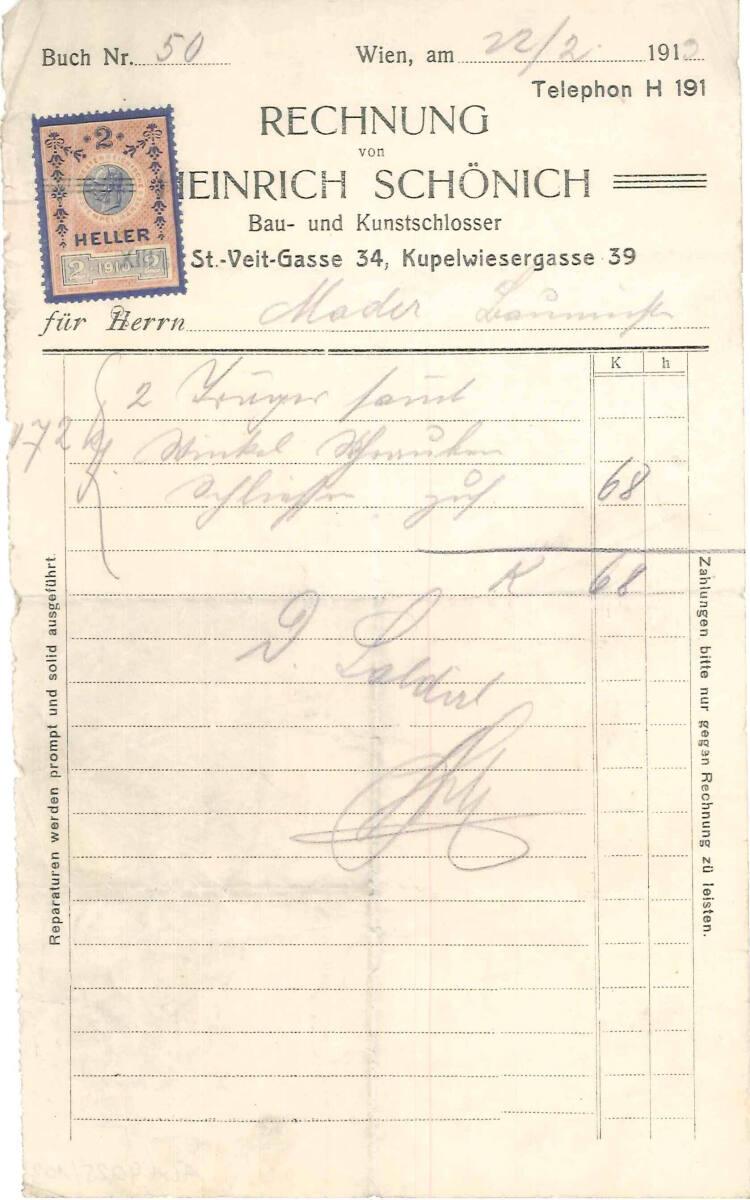 Buch Nr. 50 Wien, am 22/2 191
Telephon H 191
RECHNUNG
von
HEINRICH SCHÖNICH
Bau- und Kunstschlosser
St.-Veit-Gasse 34, Kupelwiesergasse 39
2
HELLER
2 1910 2
für Herrn Mader
K h
2 Träger samt
172 kg Winkel Schrauben
Schliessen zus 68
K 68
D. Saldirt
Reparaturen werden prompt und solid ausgeführt.
Zahlungen bitte nur gegen Rechnung zu leisten.